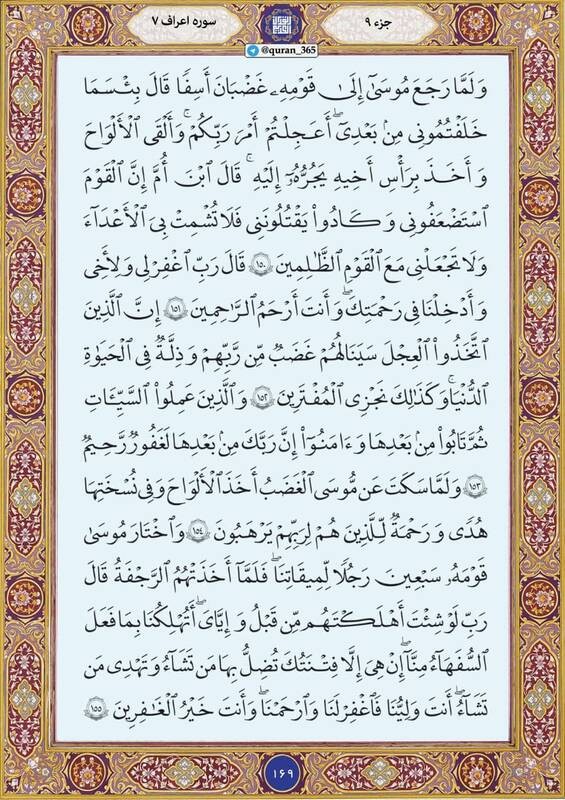 جزء ۹
سوره اعراف ۷
@quran_365
وَلَمَّا رَجَعَ مُوسَىٰٓ إِلَىٰ قَوْمِهِۦ غَضْبَٰنَ أَسِفًا قَالَ بِئْسَمَا
خَلَفْتُمُونِى مِنۢ بَعْدِىٓ ۖ أَعَجِلْتُمْ أَمْرَ رَبِّكُمْ ۖ وَأَلْقَى ٱلْأَلْوَاحَ
وَأَخَذَ بِرَأْسِ أَخِيهِ يَجُرُّهُۥٓ إِلَيْهِ ۚ قَالَ ٱبْنَ أُمَّ إِنَّ ٱلْقَوْمَ
ٱسْتَضْعَفُونِى وَكَادُوا۟ يَقْتُلُونَنِى فَلَا تُشْمِتْ بِىَ ٱلْأَعْدَآءَ
وَلَا تَجْعَلْنِى مَعَ ٱلْقَوْمِ ٱلظَّٰلِمِينَ ۱۵۰ قَالَ رَبِّ ٱغْفِرْ لِى وَلِأَخِى
وَأَدْخِلْنَا فِى رَحْمَتِكَ ۖ وَأَنتَ أَرْحَمُ ٱلرَّٰحِمِينَ ۱۵۱ إِنَّ ٱلَّذِينَ
ٱتَّخَذُوا۟ ٱلْعِجْلَ سَيَنَالُهُمْ غَضَبٌ مِّن رَّبِّهِمْ وَذِلَّةٌ فِى ٱلْحَيَوٰةِ
ٱلدُّنْيَا ۚ وَكَذَٰلِكَ نَجْزِى ٱلْمُفْتَرِينَ ۱۵۲ وَٱلَّذِينَ عَمِلُوا۟ ٱلسَّيِّـَٔاتِ
ثُمَّ تَابُوا۟ مِنۢ بَعْدِهَا وَءَامَنُوٓا۟ إِنَّ رَبَّكَ مِنۢ بَعْدِهَا لَغَفُورٌ رَّحِيمٌ
۱۵۳ وَلَمَّا سَكَتَ عَن مُّوسَى ٱلْغَضَبُ أَخَذَ ٱلْأَلْوَاحَ ۖ وَفِى نُسْخَتِهَا
هُدًى وَرَحْمَةٌ لِّلَّذِينَ هُمْ لِرَبِّهِمْ يَرْهَبُونَ ۱۵۴ وَٱخْتَارَ مُوسَىٰ
قَوْمَهُۥ سَبْعِينَ رَجُلًا لِّمِيقَٰتِنَا ۖ فَلَمَّآ أَخَذَتْهُمُ ٱلرَّجْفَةُ قَالَ
رَبِّ لَوْ شِئْتَ أَهْلَكْتَهُم مِّن قَبْلُ وَإِيَّٰىَ ۖ أَتُهْلِكُنَا بِمَا فَعَلَ
ٱلسُّفَهَآءُ مِنَّآ ۖ إِنْ هِىَ إِلَّا فِتْنَتُكَ تُضِلُّ بِهَا مَن تَشَآءُ وَتَهْدِى مَن
تَشَآءُ ۖ أَنتَ وَلِيُّنَا فَٱغْفِرْ لَنَا وَٱرْحَمْنَا ۖ وَأَنتَ خَيْرُ ٱلْغَٰفِرِينَ ۱۵۵
۱۶۹